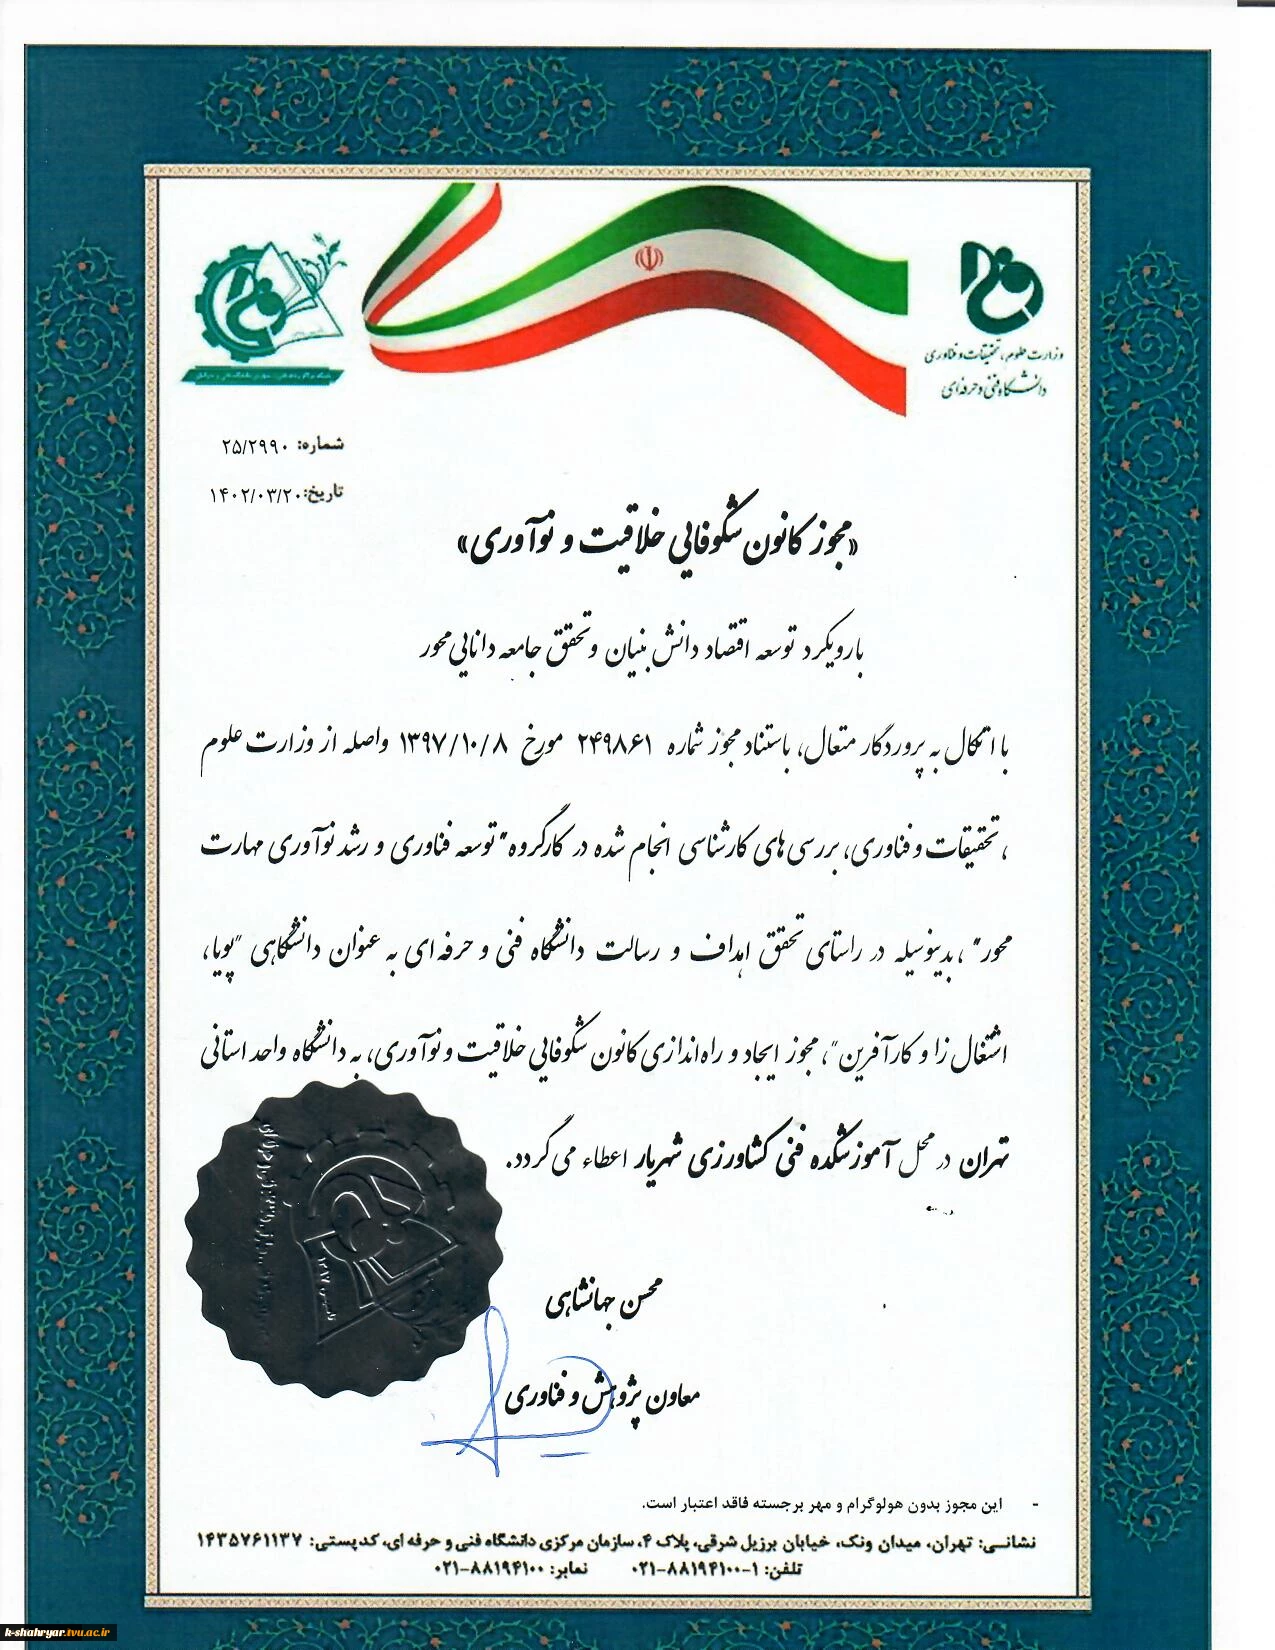 وزارت علوم، تحقیقات و فناوری
دانشگاه فنی و حرفه‌ای
شماره: ۲۵/۲۹۹۰
تاریخ: ۱۴۰۲/۰۳/۲۰
«مجوز کانون شکوفایی خلاقیت و نوآوری»
با رویکرد توسعه اقتصاد دانش بنیان و تحقق جامعه دانایی محور
با اتکال به پروردگار متعال، باستناد مجوز شماره ۲۴۹۸۶۱ مورخ ۱۳۹۷/۱۰/۸ واصله از وزارت علوم
، تحقیقات و فناوری، بررسی‌های کارشناسی انجام شده در کارگروه "توسعه فناوری و رشد نوآوری مهارت
محور"، بدینوسیله در راستای تحقق اهداف و رسالت دانشگاه فنی و حرفه ای به عنوان دانشگاهی "پویا،
اشتغال زا و کارآفرین"، مجوز ایجاد و راه‌اندازی کانون شکوفایی خلاقیت و نوآوری، به دانشگاه واحد استانی
تهران در محل آموزشکده فنی کشاورزی شهریار اعطاء می‌گردد.
محسن جهانشاهی
معاون پژوهش و فناوری
- این مجوز بدون هولوگرام و مهر برجسته فاقد اعتبار است.
نشانی: تهران، میدان ونک، خیابان برزیل شرقی، پلاک ۴، سازمان مرکزی دانشگاه فنی و حرفه ای، کدپستی: ۱۴۳۵۷۶۱۱۳۷
تلفن: ۱-۸۸۱۹۴۱۰۰-۰۲۱ نمابر: ۸۸۱۹۴۱۰۰-۰۲۱
k-shahryar.tvu.ac.ir